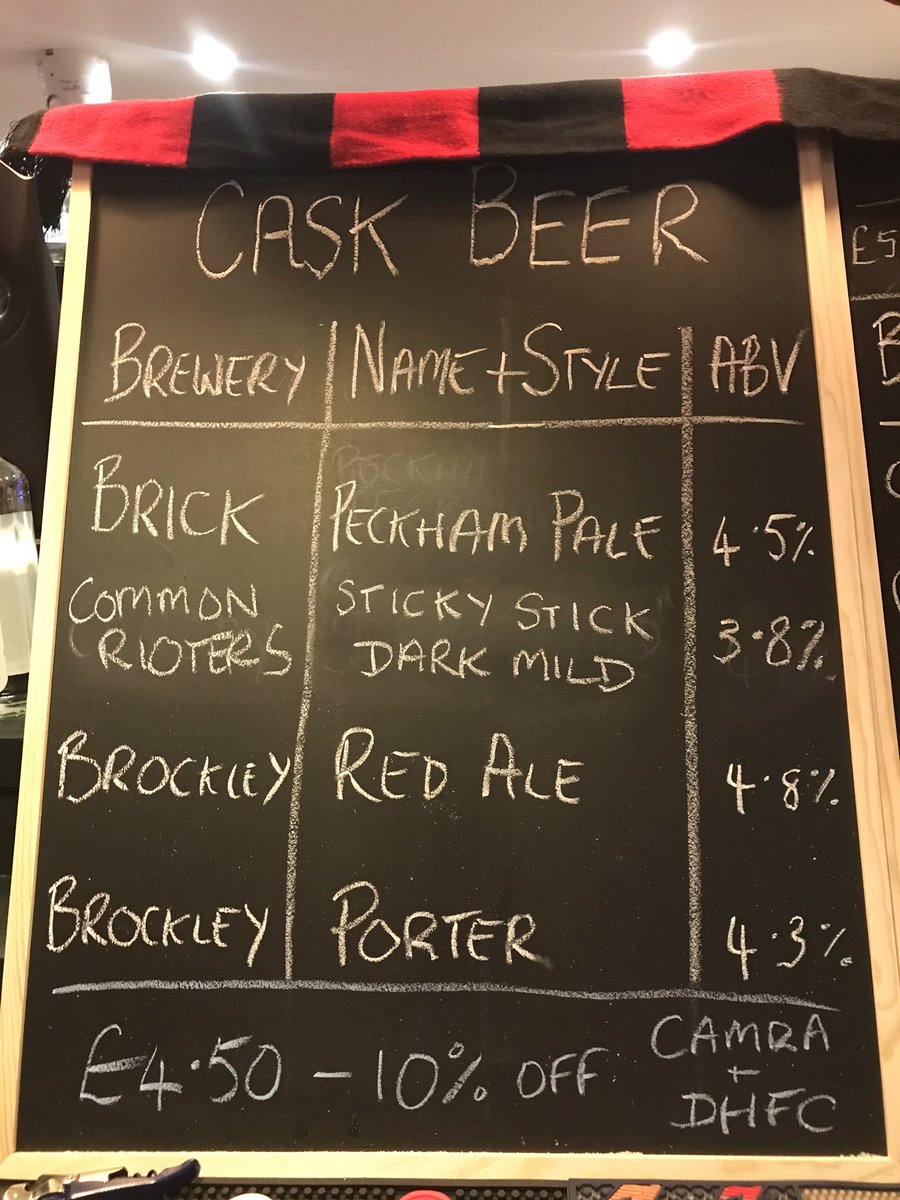 CASK BEER
BREWERY NAME + STYLE ABV
BRICK PECKHAM PALE 4.5%
COMMON RIOTERS STICKY STICK DARK MILD 3.8%
BROCKLEY RED ALE 4.8%
BROCKLEY PORTER 4.3%
£4.50 - 10% OFF CAMRA + DHFC
£5